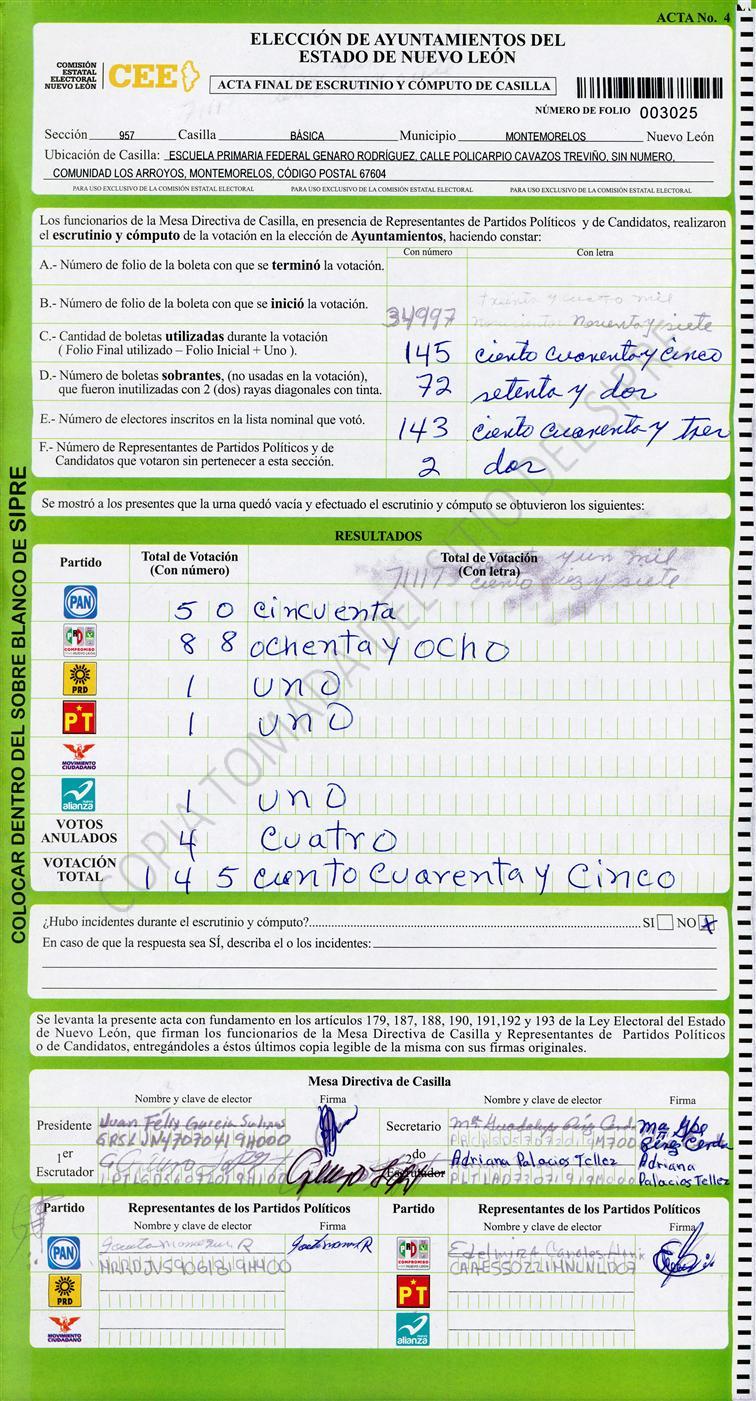 ACTA No. 4
ELECCIÓN DE AYUNTAMIENTOS DEL
ESTADO DE NUEVO LEÓN
COMISIÓN
ESTATAL
ELECTORAL
NUEVO LEÓN
CEE
ACTA FINAL DE ESCRUTINIO Y CÓMPUTO DE CASILLA
NÚMERO DE FOLIO 003025
Sección 957 Casilla BÁSICA Municipio MONTEMORELOS Nuevo León
Ubicación de Casilla: ESCUELA PRIMARIA FEDERAL GENARO RODRÍGUEZ, CALLE POLICARPIO CAVAZOS TREVIÑO, SIN NUMERO,
COMUNIDAD LOS ARROYOS, MONTEMORELOS, CÓDIGO POSTAL 67604
PARA USO EXCLUSIVO DE LA COMISIÓN ESTATAL ELECTORAL PARA USO EXCLUSIVO DE LA COMISIÓN ESTATAL ELECTORAL PARA USO EXCLUSIVO DE LA COMISIÓN ESTATAL ELECTORAL
Los funcionarios de la Mesa Directiva de Casilla, en presencia de Representantes de Partidos Políticos y de Candidatos, realizaron
el escrutinio y cómputo de la votación en la elección de Ayuntamientos, haciendo constar:
Con número Con letra
A.- Número de folio de la boleta con que se terminó la votación.
B.- Número de folio de la boleta con que se inició la votación. 34997 treinta y cuatro mil
novecientos noventa y siete
C.- Cantidad de boletas utilizadas durante la votación
( Folio Final utilizado – Folio Inicial + Uno ). 145 ciento cuarenta y cinco
D.- Número de boletas sobrantes, (no usadas en la votación),
que fueron inutilizadas con 2 (dos) rayas diagonales con tinta. 72 setenta y dos
E.- Número de electores inscritos en la lista nominal que votó. 143 ciento cuarenta y tres
F.- Número de Representantes de Partidos Políticos y de
Candidatos que votaron sin pertenecer a esta sección. 2 dos
Se mostró a los presentes que la urna quedó vacía y efectuado el escrutinio y cómputo se obtuvieron los siguientes:
RESULTADOS
Partido Total de Votación (Con número) Total de Votación (Con letra)
71117 y un mil
ciento diez y siete
PAN 5 0 cincuenta
COMPROMISO 8 8 ochenta y ocho
PRD 1 uno
PT 1 uno
MOVIMIENTO CIUDADANO
nueva alianza 1 uno
VOTOS ANULADOS 4 cuatro
VOTACIÓN TOTAL 1 4 5 ciento cuarenta y cinco
¿Hubo incidentes durante el escrutinio y cómputo? SI NO X
En caso de que la respuesta sea SÍ, describa el o los incidentes:
Se levanta la presente acta con fundamento en los artículos 179, 187, 188, 190, 191,192 y 193 de la Ley Electoral del Estado
de Nuevo León, que firman los funcionarios de la Mesa Directiva de Casilla y Representantes de Partidos Políticos
o de Candidatos, entregándoles a éstos últimos copia legible de la misma con sus firmas originales.
Mesa Directiva de Casilla
Nombre y clave de elector Firma Nombre y clave de elector Firma
Presidente Juan Félix García Salinas Secretario Ma Guadalupe Ma Gpe
1er Escrutador 2do Escrutador Adriana Palacios Tellez Adriana Palacios Tellez
Partido Representantes de los Partidos Políticos Partido Representantes de los Partidos Políticos
Nombre y clave de elector Firma Nombre y clave de elector Firma
PAN COMPROMISO Edelmira
PRD PT
MOVIMIENTO CIUDADANO nueva alianza
COLOCAR DENTRO DEL SOBRE BLANCO DE SIPRE
COPIA TOMADA DEL SITIO DEL SIPRE